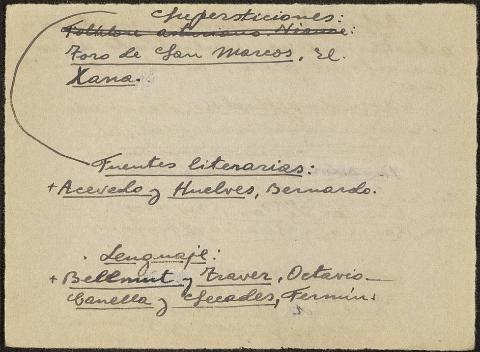 Supersticiones:
Folklore asturiano. Nianne:
Toro de San Marcos, El.
Xana.
Fuentes literarias:
+ Acevedo y Huelves, Bernardo.
. Lenguaje:
+ Bellmut y Traver, Octavio
Canella y Secades, Fermín.